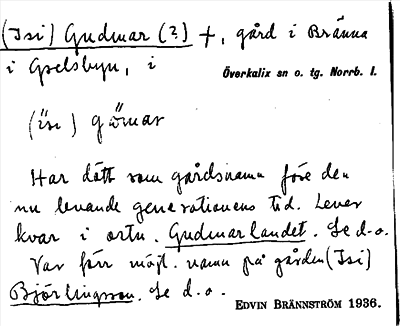 (Isi) Gudmar (?) +, gård i Bränna
i Grelsbyn, i
Överkalix sn o. tg. Norrb. l.
( isi ) gömar
Har dött som gårdsnamn före den
nu levande generationens tid. Lever
kvar i ortn. Gudmarlandet. Se d.o.
Var förr möjl. namn på gården (Isi)
Björlingson. Se d.o.
EDVIN BRÄNNSTRÖM 1936.